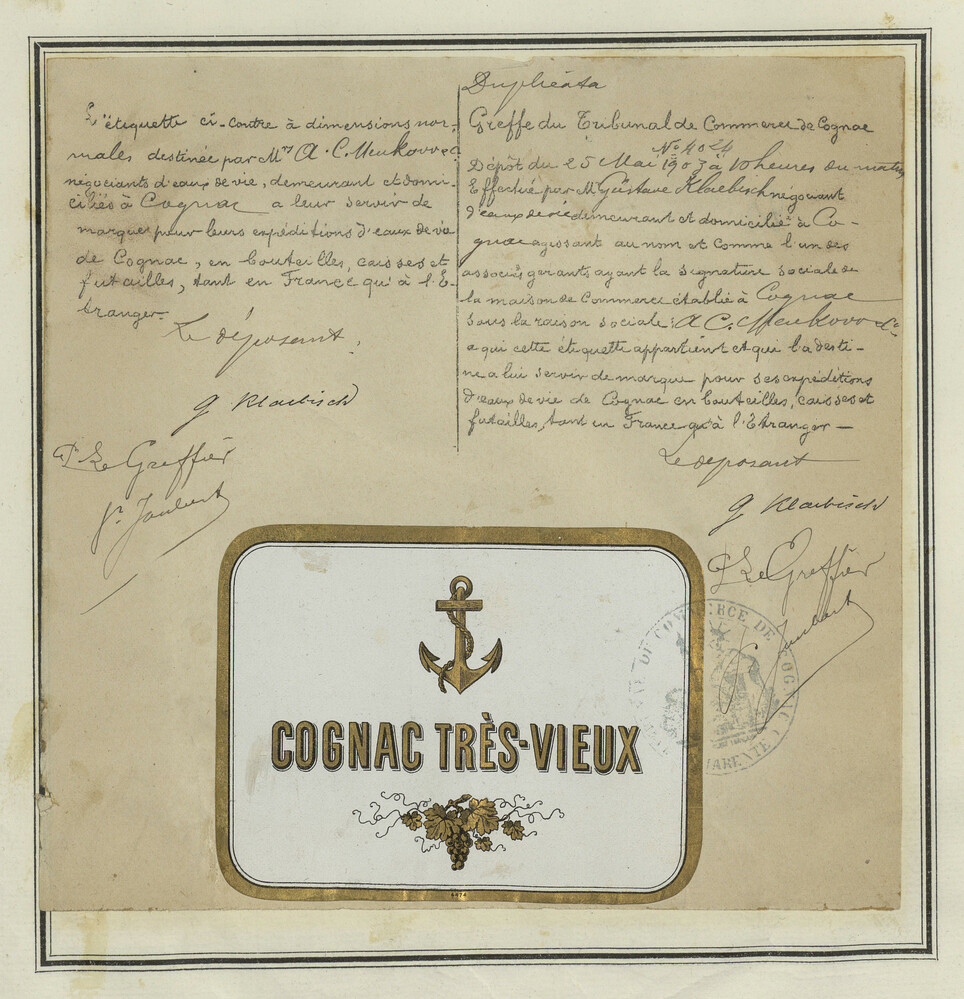 L'étiquette ci-contre à dimensions nor-
males destinée par Mrs A. C. Meukow & Co
négociants d'eaux de vie, demeurant et domi-
ciliés à Cognac a leur servir de
marque pour leurs expéditions d'eaux de vie
de Cognac, en bouteilles, caisses et
futailles, tant en France qu'à l'E-
tranger.
Le déposant.
G Klaebisch
Pr Le Greffier
Joubert
Duplicata
Greffe du Tribunal de Commerce de Cognac
No 4024
Dépôt du 25 Mai 1903 à 10 heures du matin
Effectué par M. Gustave Klaebisch négociant
d'eaux de vie demeurant et domicilié à Co-
gnac agissant au nom et comme l'un des
associés gérants, ayant la signature sociale de
la maison de Commerce établie à Cognac
sous la raison sociale: A C. Meukow & Co
a qui cette étiquette appartient et qui l'a desti-
née a lui servir de marque pour ses expéditions
d'eaux de vie de Cognac en bouteilles, caisses et
futailles, tant en France qu'à l'Etranger —
Le déposant
G Klaebisch
Pr Le Greffier
Joubert
DE COMMERCE DE COGNAC
CHARENTE
COGNAC TRÈS-VIEUX